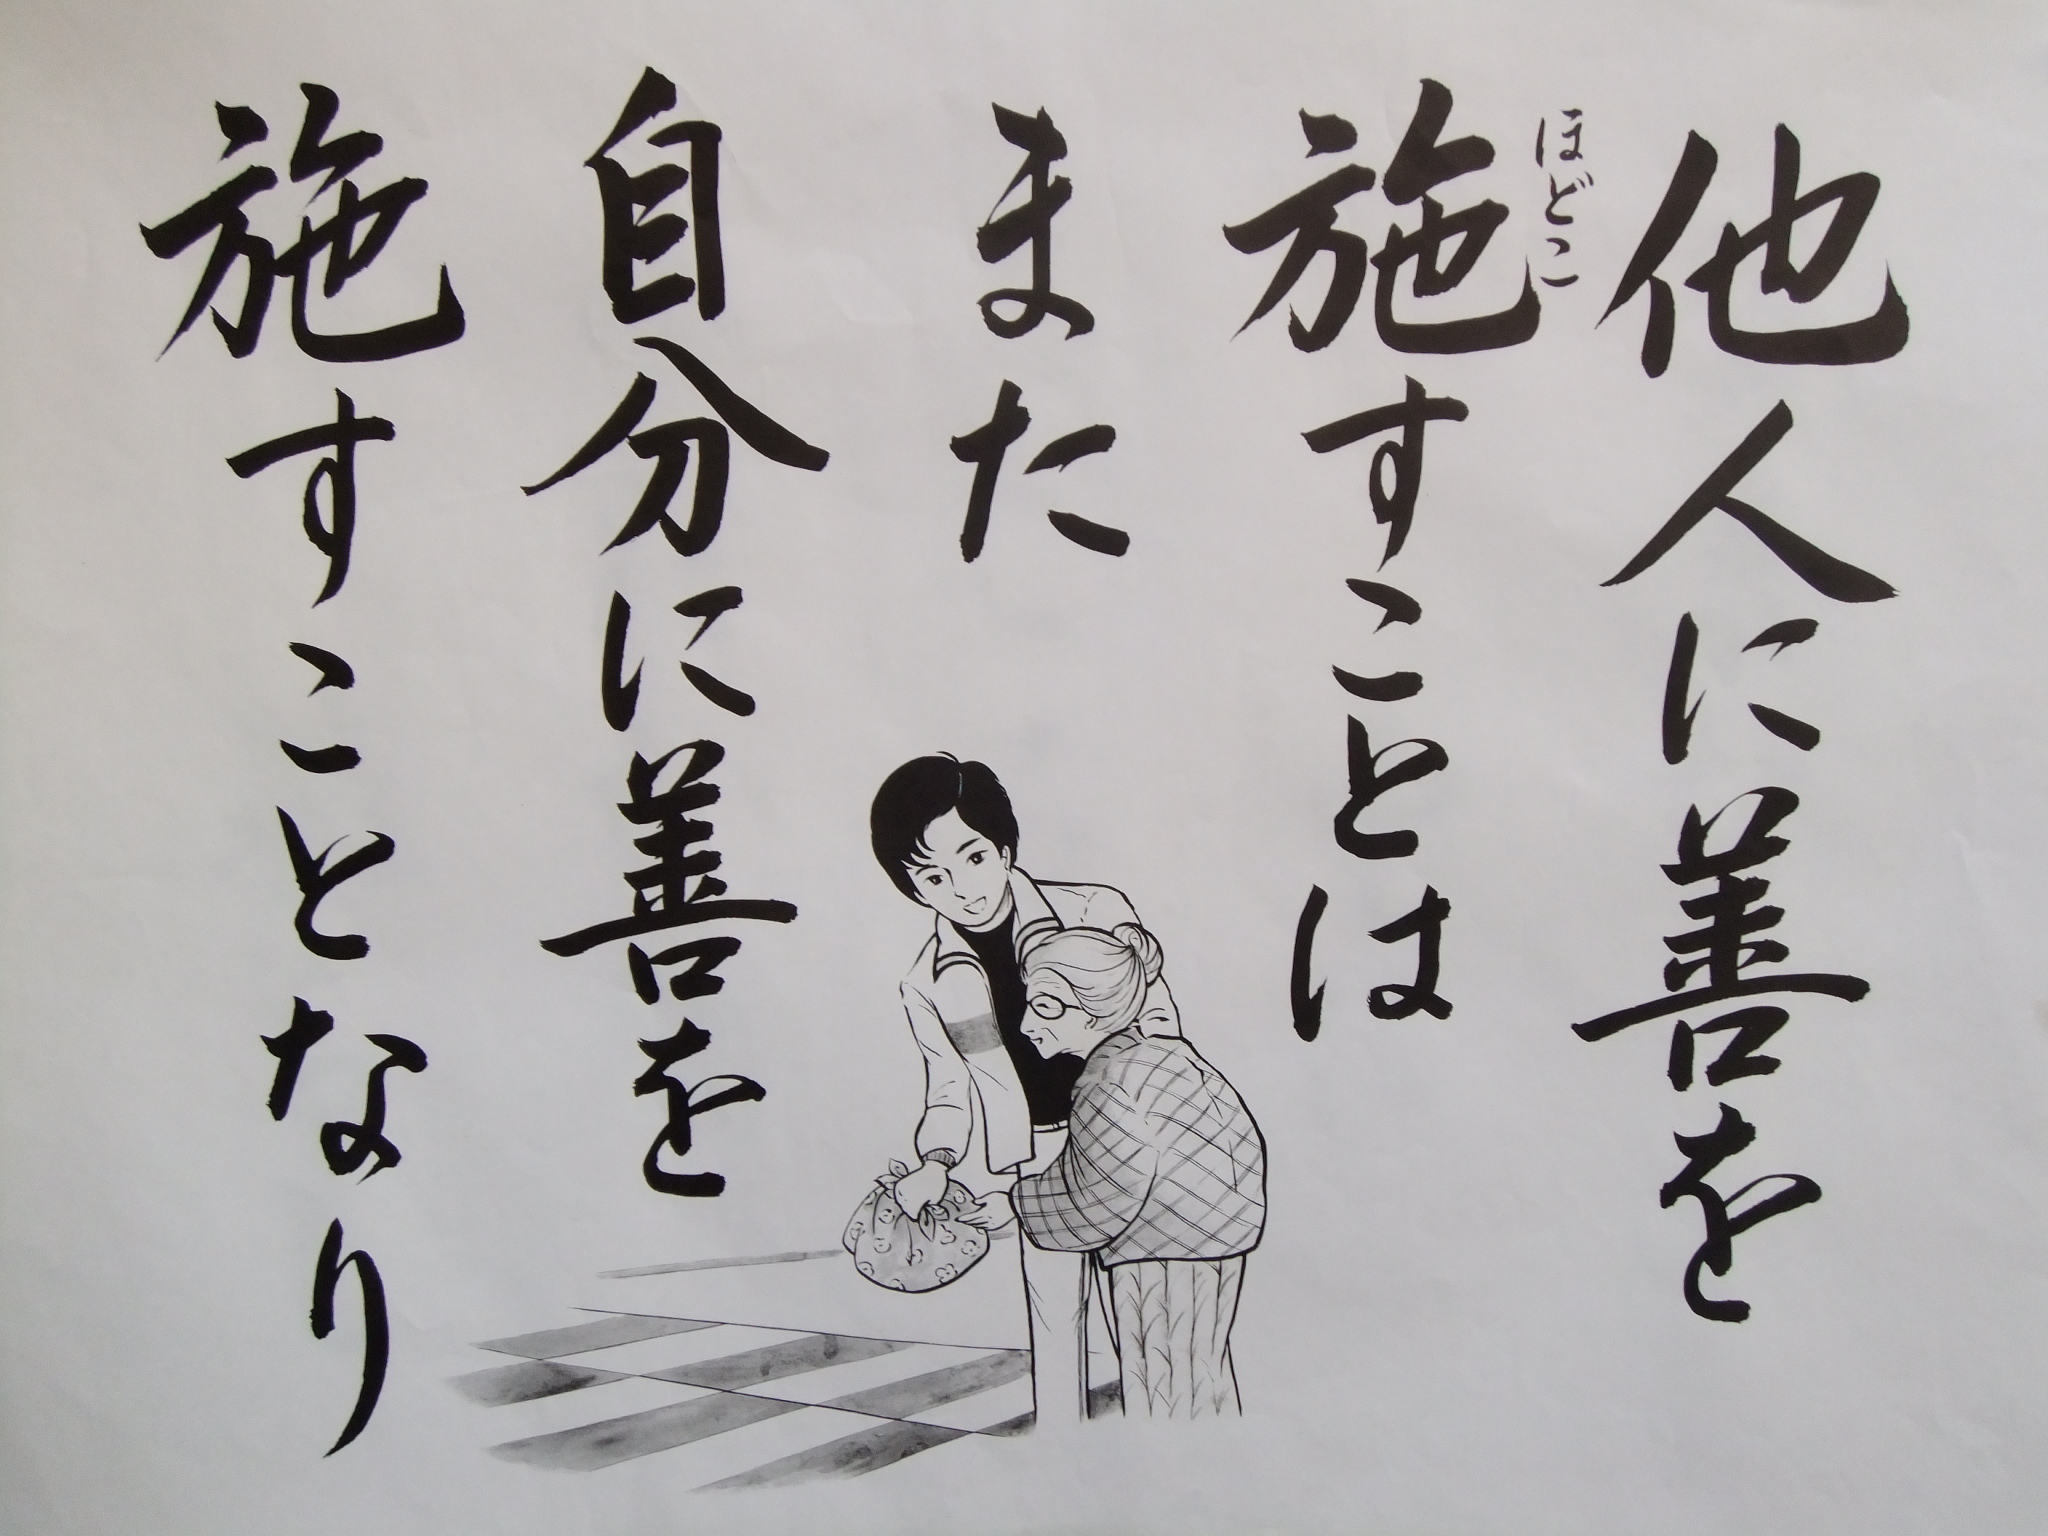 他人に善を
ほどこ
施すことは
また
自分に善を
施すことなり